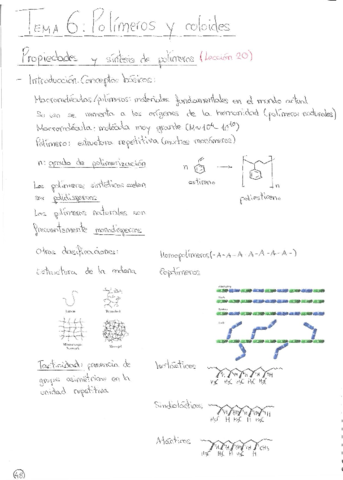 TEMA 6: Polímeros y coloides
Propiedades y síntesis de polímeros (Lección 20)
- Introducción. Conceptos básicos:
Macromoléculas/polímeros: materiales fundamentales en el mundo actual
Su uso se remonta a los orígenes de la humanidad (polímeros naturales)
Macromolécula: molécula muy grande
Polímero: estructura repetitiva (muchos monómeros)
n: grado de polimerización
Los polímeros sintéticos suelen
ser polidispersos
Los polímeros naturales son
frecuentemente monodispersos
n
estireno
n
poliestireno
Otras clasificaciones:
Homopolímeros (-A-A-A-A-A-A-)
Estructura de la cadena
Copolímeros
Tacticidad: posición de
grupos asimétricos en la
unidad repetitiva
Isotácticos
Sindiotácticos
Atácticos